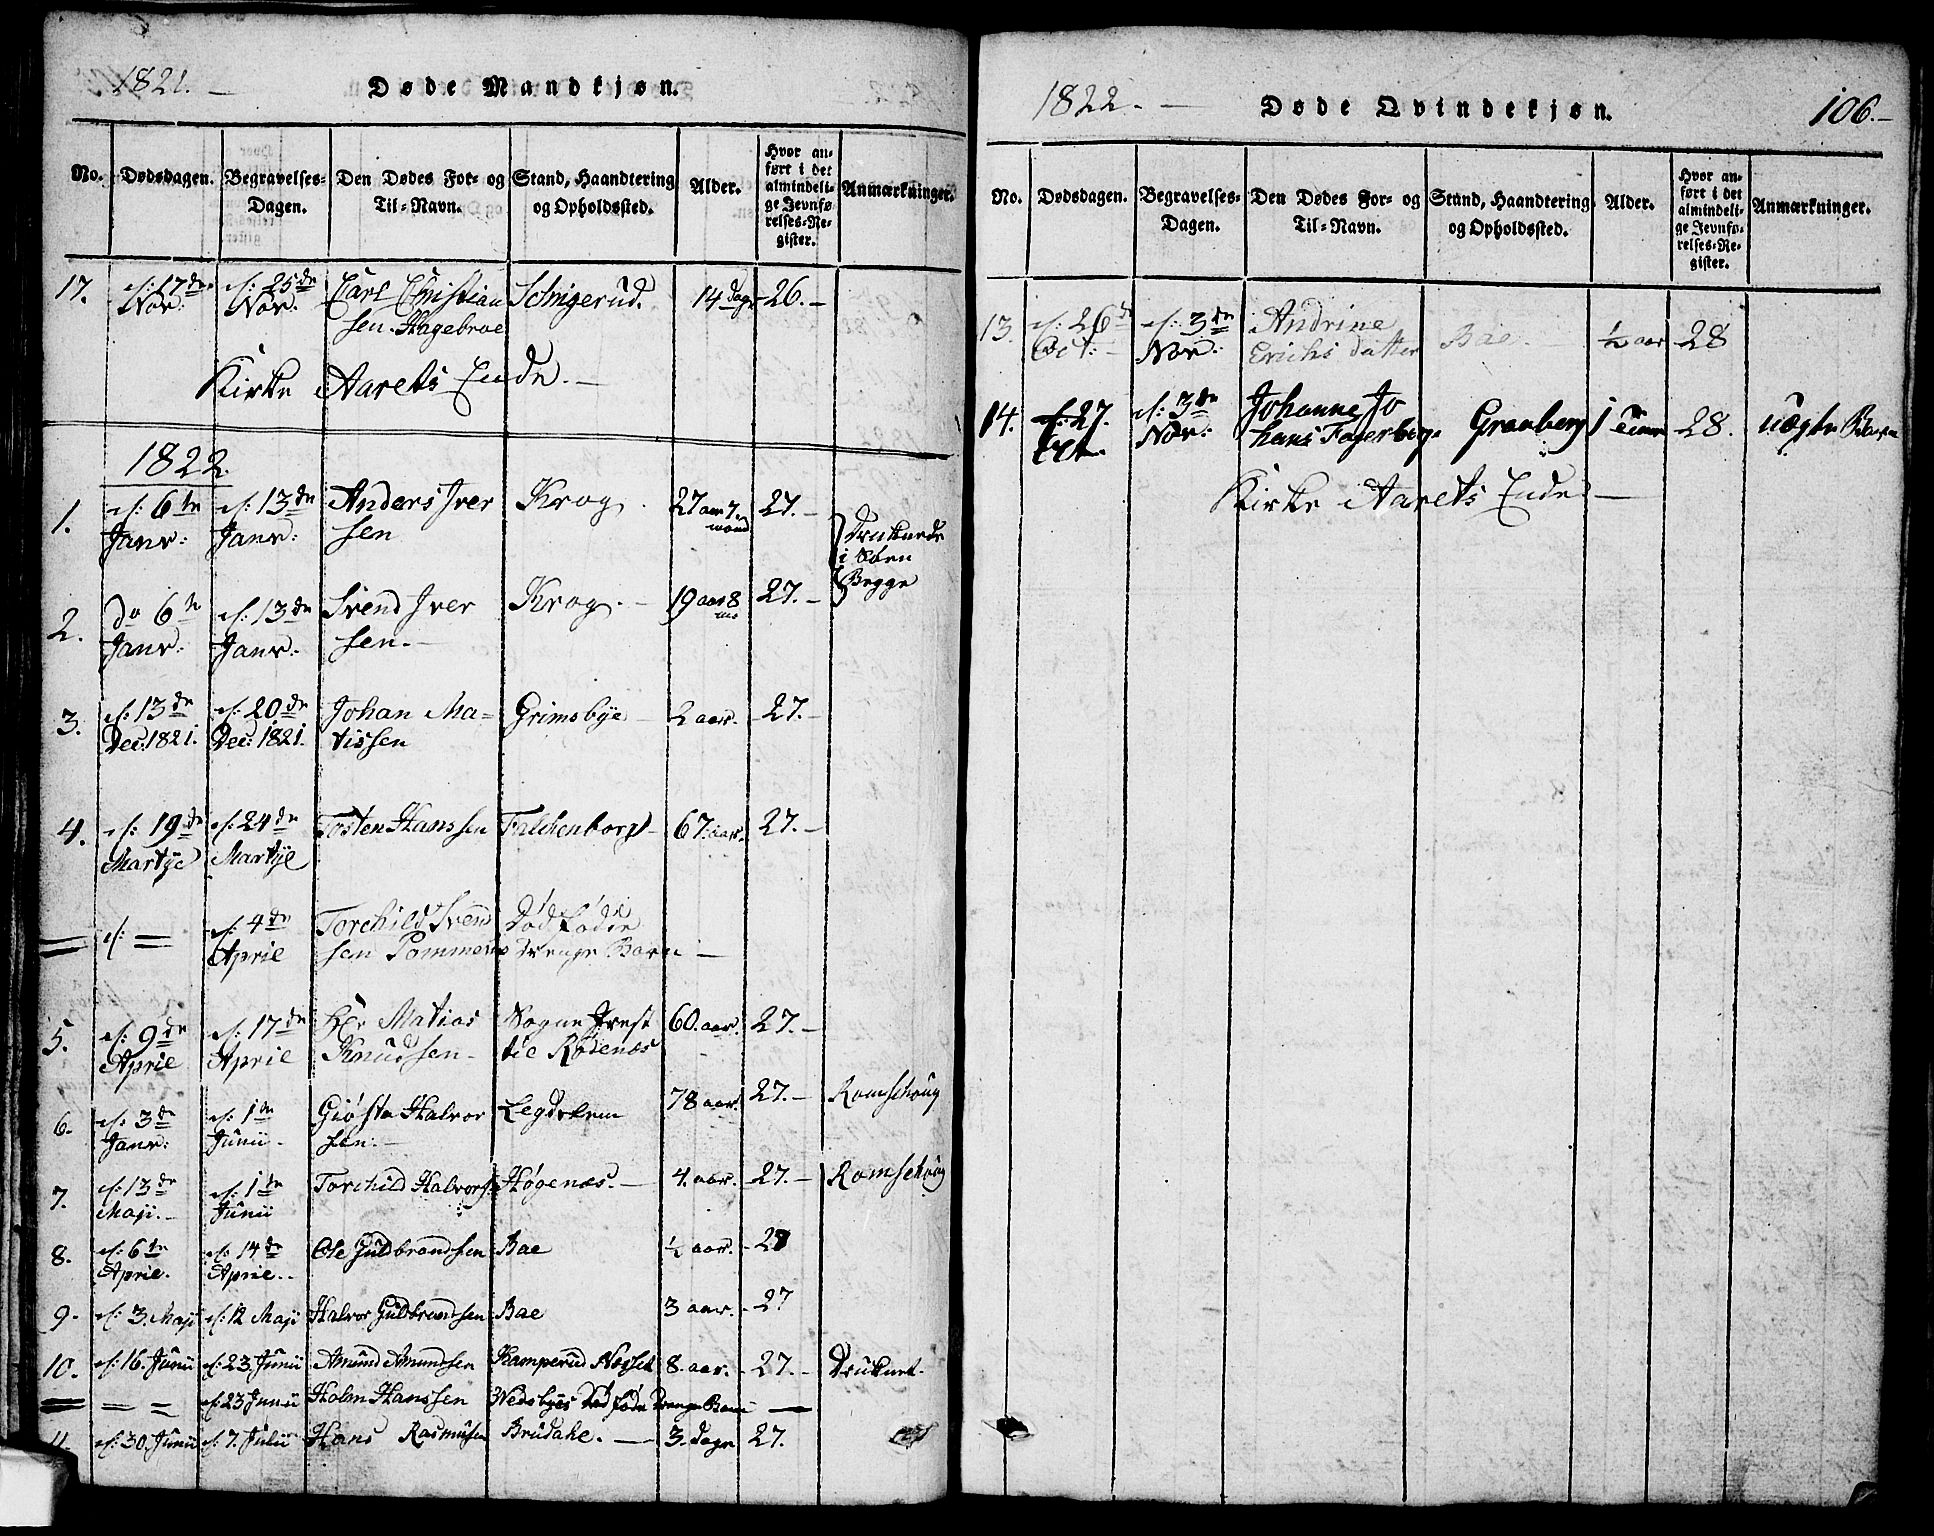 1821. —
Døde Mandkjøn.
No. Dødsdagen. Begravelses-Dagen. Den Dødes For- og Til-Navn. Stand, Haandtering og Opholdssted. Alder. Hvor anført i det almindelige Jevnførelses-Register. Anmærkninger.
17. d: 17de Nov: d: 25de Nov: Carl Christiansen Hagebroe Solvigerud. 14 Dage 26. —
Kirke Aarets Ende. —
1822.
1. d: 6te Janv: d: 13de Janv: Anders Iversen Krog. 27 aar 7. maand 27. — Druknede i Søen Begge
2. do 6te Janv: d: 13de Janv: Svend Iversen. — Krog. — 19 aar 8 27. —
3. d: 13de Dec: 1821. d: 20de Dec: 1821. Johan Matissen Grimsbye 2 aar. 27. —
4. d: 19de Martye d: 24de Martye Tosten Hanssen Falchenborg 67. aar. 27. —
= d: = d: 4de April Torchild Svensen Pommeren Død føder Drenge Barn —
5. d: 9de April d: 17de April Hr Matias Knudsen — Sogne Prest til Rødenæs 60. aar. 27. —
6. d: 3de Janv: d: 1te Junii Giøsta Halvorsen. — Legdslem 78 aar. 27. — Romschoug
7. d: 13de Maji. d: 1te Junii Torchild Halvors: Høgenæs. — 4. aar. 27. — Romschoug
8. d: 6te April. d: 14de April. Ole Guldbrandsen Bae ½ aar. 27
9. d: 3. Maji d: 12 Maji Halvor Guldbrandsen Bae 3 aar. 27
10. d: 16. Junii d: 23. Junii Amund Amundsen Kamperud Næsset 8. aar. 27. — Druknet.
= = = d: 23 Junii Holm Hanssen Wedsbyes Død føde Drenge Barn —
11. d: 30. Junii d: 7. Julii Hans Rasmusen Brudahl. — 3. dage 27.
1822. —
Døde Qvindekjøn.
106. —
No. Dødsdagen. Begravelses-Dagen. Den Dødes For- og Til-Navn. Stand, Haandtering og Opholdssted. Alder. Hvor anført i det almindelige Jevnførelses-Register. Anmærkninger.
13. d: 26de Oct: d: 3de Nov: Andrine Erichs datter Bae. ½ aar 28
14. d: 27. Oct. d: 3de Nov: Johanne Johans Fagerberg Granberg 1 Time 28. uægte Barn
Kirke Aarets Ende —